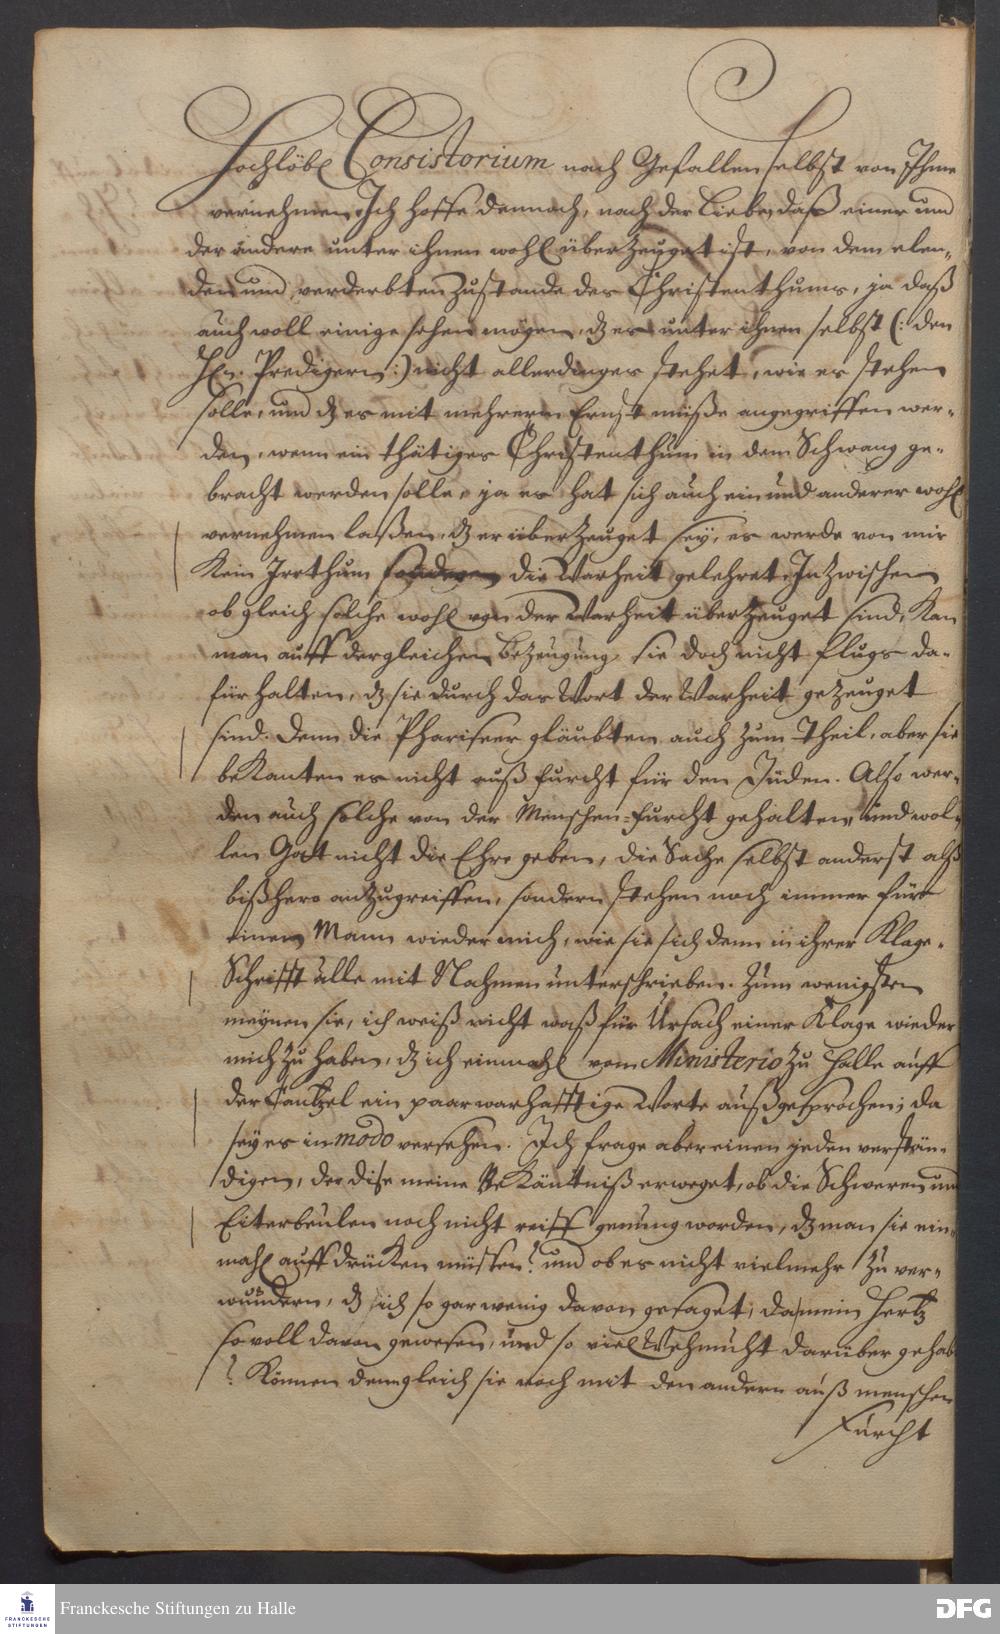 Hochlöbl Consistorium nach Gefallen selbst von Ihme
vernehmen. Ich hoffe dennoch, nach der Liebe, daß einer und
der andere unter ihnen wohl überzeuget ist, von dem elen-
den und verderbten Zustande des Christenthums, ja daß
auch woll einige sehen mögen, dz es unter ihnen selbst (: den
HEn. Predigern :) nicht allerdinges stehet, wie es stehen
solle, und dz es mit mehrerm Ernst müße angegriffen wer-
den, wenn ein thätiges Christenthum in dem Schwang ge-
bracht werden solle, ja es hat sich auch ein und anderer wohl
vernehmen laßen, dz er überzeuget sey, es werde von mir
Kein Irrthum sondern die Warheit gelehret. Inzwischen
ob gleich solche wohl von der Warheit überzeuget sind, Kan
man auff dergleichen Bezeugung sie doch nicht flugs da-
für halten, dz sie durch das Wort der Warheit gezeuget
sind. Denn die Phariseer gläubten auch zum Theil, aber sie
beKanten es nicht auß furcht für den Jüden. Also wer-
den auch solche von der Menschen-furcht gehalten, und wol-
len Gott nicht die Ehre geben, die Sache selbst anderst alß
bißhero anzugreiffen, sondern stehen noch immer für
einen Mann wieder mich, wie sie sich denn in ihrer Klage-
Schrifft alle mit Nahmen unterschrieben. Zum wenigsten
meynen sie, ich weiß nicht waß für Ursach einer Klage wieder
mich zu haben, dz ich einmahl vom Ministerio zu Halle auff
der Cantzel ein paar warhafftige Worte außgesprochen; da
sey es in modo versehen. Ich frage aber einen jeden verstän-
digen, der diese meine BeKäntniß erweget, ob die Schweren und
Eiterbeulen noch nicht reiff genung worden, dz man sie ein-
mahl auffdrücken müssen? und ob es nicht vielmehr zu ver-
wundern, dz ich so gar wenig davon gesaget, da mein Hertz
so voll davon gewesen, und so viel Wehmuht darüber gehab
? Können denn gleich sie noch mit den andern auß menschen
Furcht
Franckesche Stiftungen zu Halle
FRANCKESCHE
STIFTUNGEN
DFG